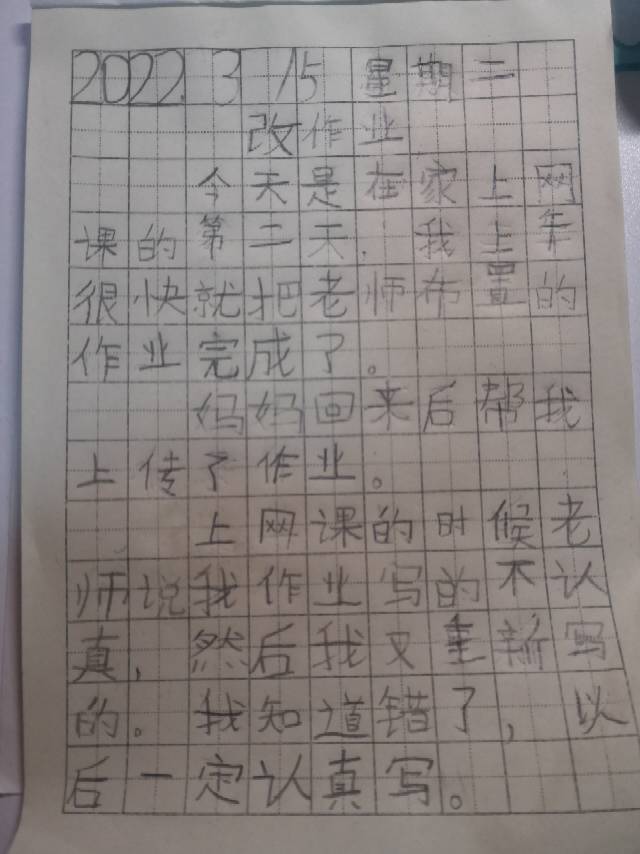 2022.3 15 星期二
改作业
今天是在家上网
课的第二天.我上午
很快就把老师布置的
作业完成了。
妈妈回来后帮我
上传了作业。
上网课的时候老
师说我作业写的不认
真,然后我又重新写
的。我知道错了,以
后一定认真写。